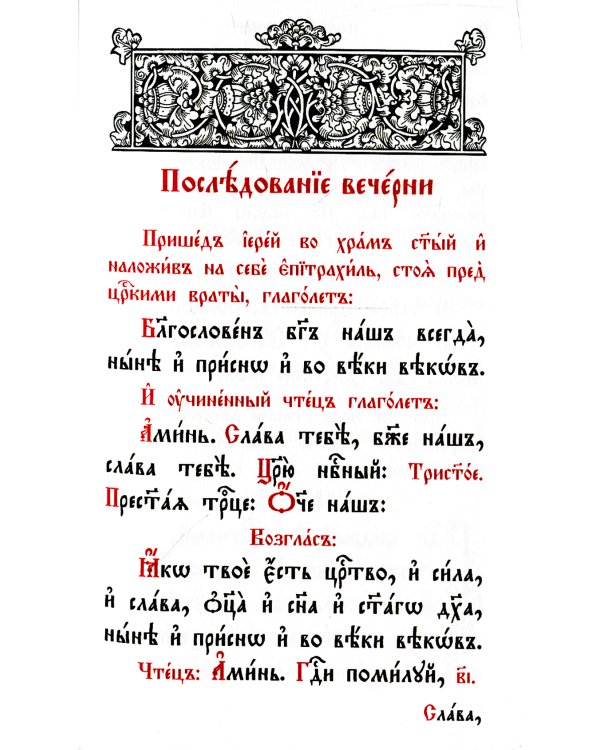 Послѣ́дованїе вече́рни
Прише́дъ і҆ере́й во хра́мъ ст҃ы́й и҆
наложи́въ на себѐ є҆пїтрахи́ль, стоѧ̀ пред̾
црⷭ҇кими враты̀, глаго́летъ:
Бл҃гослове́нъ бг҃ъ на́шъ всегда̀,
ны́нѣ и҆ при́снѡ и҆ во вѣ́ки вѣкѡ́въ.
И҆ ᲂу҆чине́нный чте́цъ глаго́летъ:
А҆ми́нь. Сла́ва тебѣ̀, бж҃е на́шъ,
сла́ва тебѣ̀. Цр҃ю̀ нбⷭ҇ный: Трист҃о́е.
Прест҃а́ѧ трⷪ҇це: Ѻ҆́ч҃е на́шъ:
Возгла́съ:
Ꙗ҆́кѡ твоѐ є҆́сть црⷭ҇тво, и҆ си́ла,
и҆ сла́ва, ѻ҆ц҃а̀ и҆ сн҃а и҆ ст҃а́гѡ дх҃а,
ны́нѣ и҆ при́снѡ и҆ во вѣ́ки вѣкѡ́въ.
Чте́цъ: А҆ми́нь. Гдⷭ҇и поми́лꙋй, в҃і.
Сла́ва,